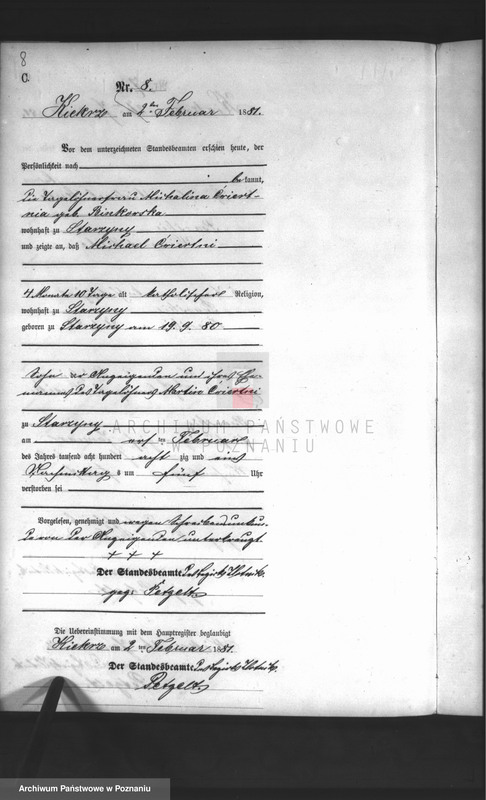 8
C.
Nr. 8.
Kiekrz am 2ten Februar 1881.
Vor dem unterzeichneten Standesbeamten erschien heute, der
Persönlichkeit nach
bekannt,
die Tagelöhnerfrau Michalina
geb.
wohnhaft zu Starzyny
und zeigte an, daß Michael
4 Monate 10 Tage alt katholischer Religion,
wohnhaft zu Starzyny
geboren zu Starzyny am 19. 9. 80
Sohn der Anzeigenden und ihres Ehe-
mannes des Tagelöhners Martin
zu Starzyny
ARCHIWUM PAŃSTWOWE
W POZNANIU
am ersten Februar
des Jahres tausend acht hundert acht zig und eins
Nachmittags um fünf Uhr
verstorben sei
Vorgelesen, genehmigt und wegen Schreibensunkun-
de von der Anzeigenden unterkreuzt.
+ + +
Der Standesbeamte des Bezirks
gez. Petzelt
Die Uebereinstimmung mit dem Hauptregister beglaubigt
Kiekrz am 2ten Februar 1881.
Der Standesbeamte des Bezirks
Petzelt
Archiwum Państwowe w Poznaniu